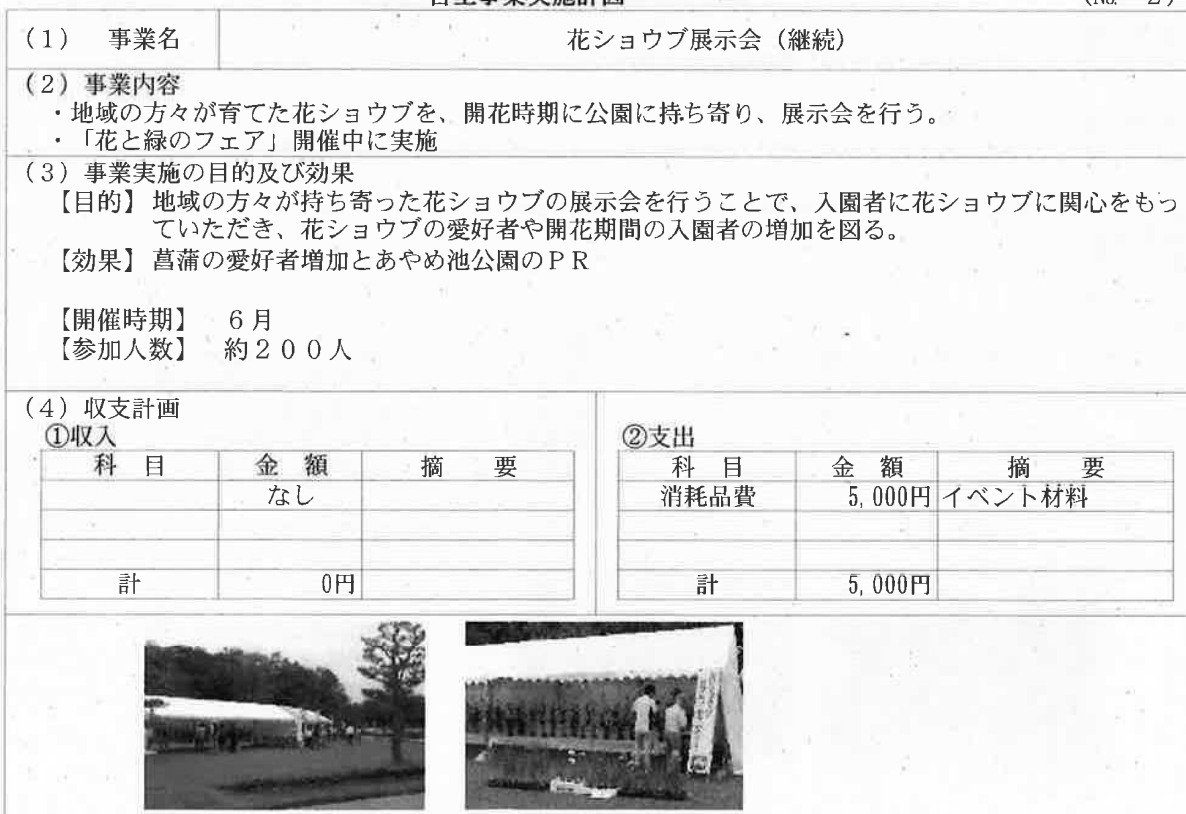 自主事業実施計画 (No. 2)
(1) 事業名 花ショウブ展示会(継続)
(2)事業内容
・地域の方々が育てた花ショウブを、開花時期に公園に持ち寄り、展示会を行う。
・「花と緑のフェア」開催中に実施
(3)事業実施の目的及び効果
【目的】地域の方々が持ち寄った花ショウブの展示会を行うことで、入園者に花ショウブに関心をもっ
ていただき、花ショウブの愛好者や開花期間の入園者の増加を図る。
【効果】菖蒲の愛好者増加とあやめ池公園のPR
【開催時期】 6月
【参加人数】 約200人
(4)収支計画
①収入
科 目 金 額 摘 要
なし
計 0円
②支出
科 目 金 額 摘 要
消耗品費 5,000円 イベント材料
計 5,000円